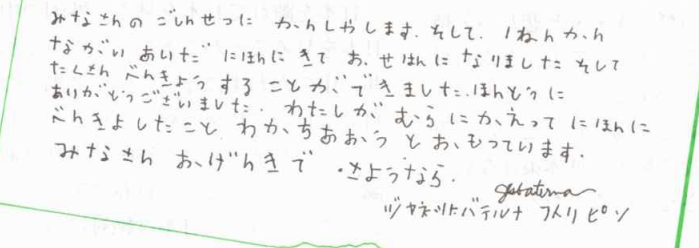 みなさんの ごしんせつに かんしやします. そして. 1ねんかん
ながい あいだ にほんに きて お. せはんに なりました そして
たくさん べんきょう する ことが できました. ほんとうに
ありがとうございました. わたしが むらに かえって にほんに
べんきよしたこと わかちあおう と おもっています.
みなさん おげんきで . さようなら.
ジャネット バテルナ フィリピン